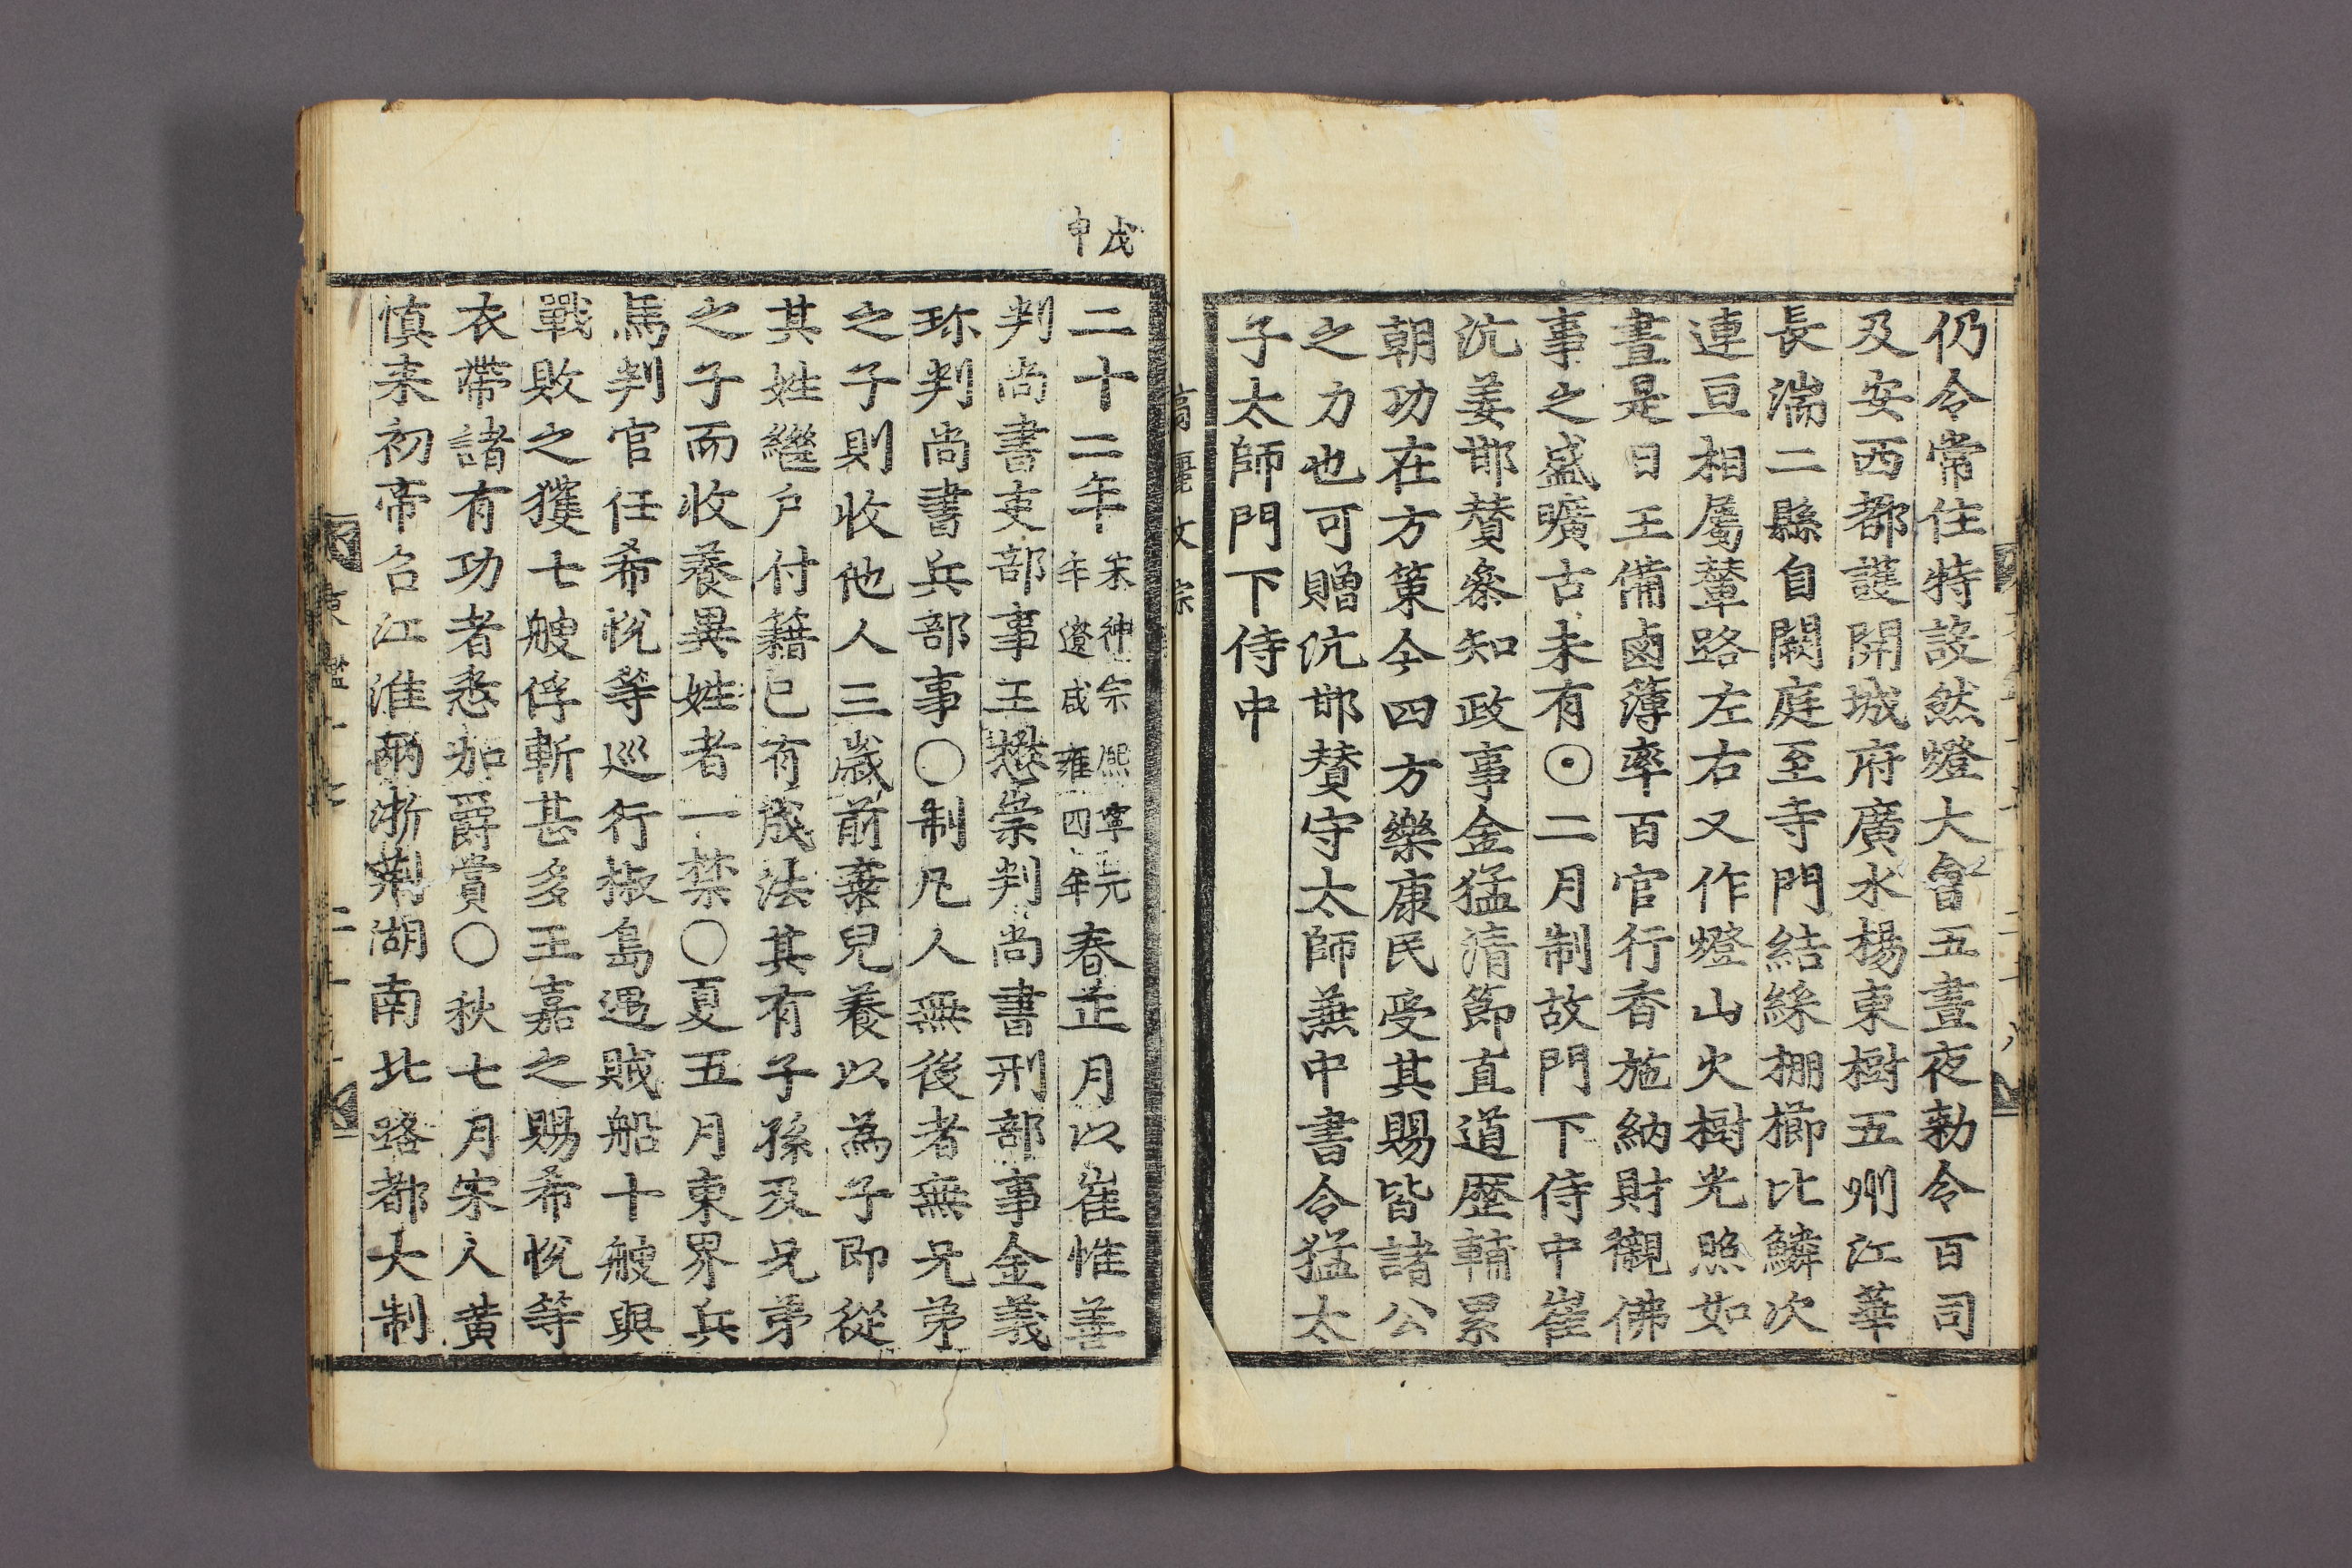 仍令常住特設然燈大會五晝夜勑令百司
及安西都護開城府廣水楊東樹五州江華
長湍二縣自闕庭至寺門結綵棚櫛比鱗次
連亘相屬輦路左右又作燈山火樹光照如
晝是日王備鹵薄率百官行香施納財襯佛
事之盛曠古未有⊙二月制故門下侍中崔
沆姜邯贊叅知政事金猛淸節直道歷輔累
朝功在方策今四方樂康民受其賜皆諸公
之力也可贈沆邯贊守太師兼中書令猛太
子太師門下侍中
高麗文宗
戊申
二十二年宋神宗熙寧元年遼咸雍四年春正月以崔惟善
判尙書吏部事王懋崇判尙書刑部事金義
珎判尙書兵部事○制凡人無後者無兄弟
之子則收他人三歲前棄兒養以爲子即從
其姓繼戶付籍已有成法其有子孫及兄弟
之子而收養異姓者一禁○夏五月東界兵
馬判官任希悅等巡行椒島遇賊船十艘與
戰敗之獲七艘俘斬甚多王嘉之賜希悅等
衣帶諸有功者悉加爵賞○秋七月宋人黃
愼来初帝召江淮兩浙荊湖南北路都大制